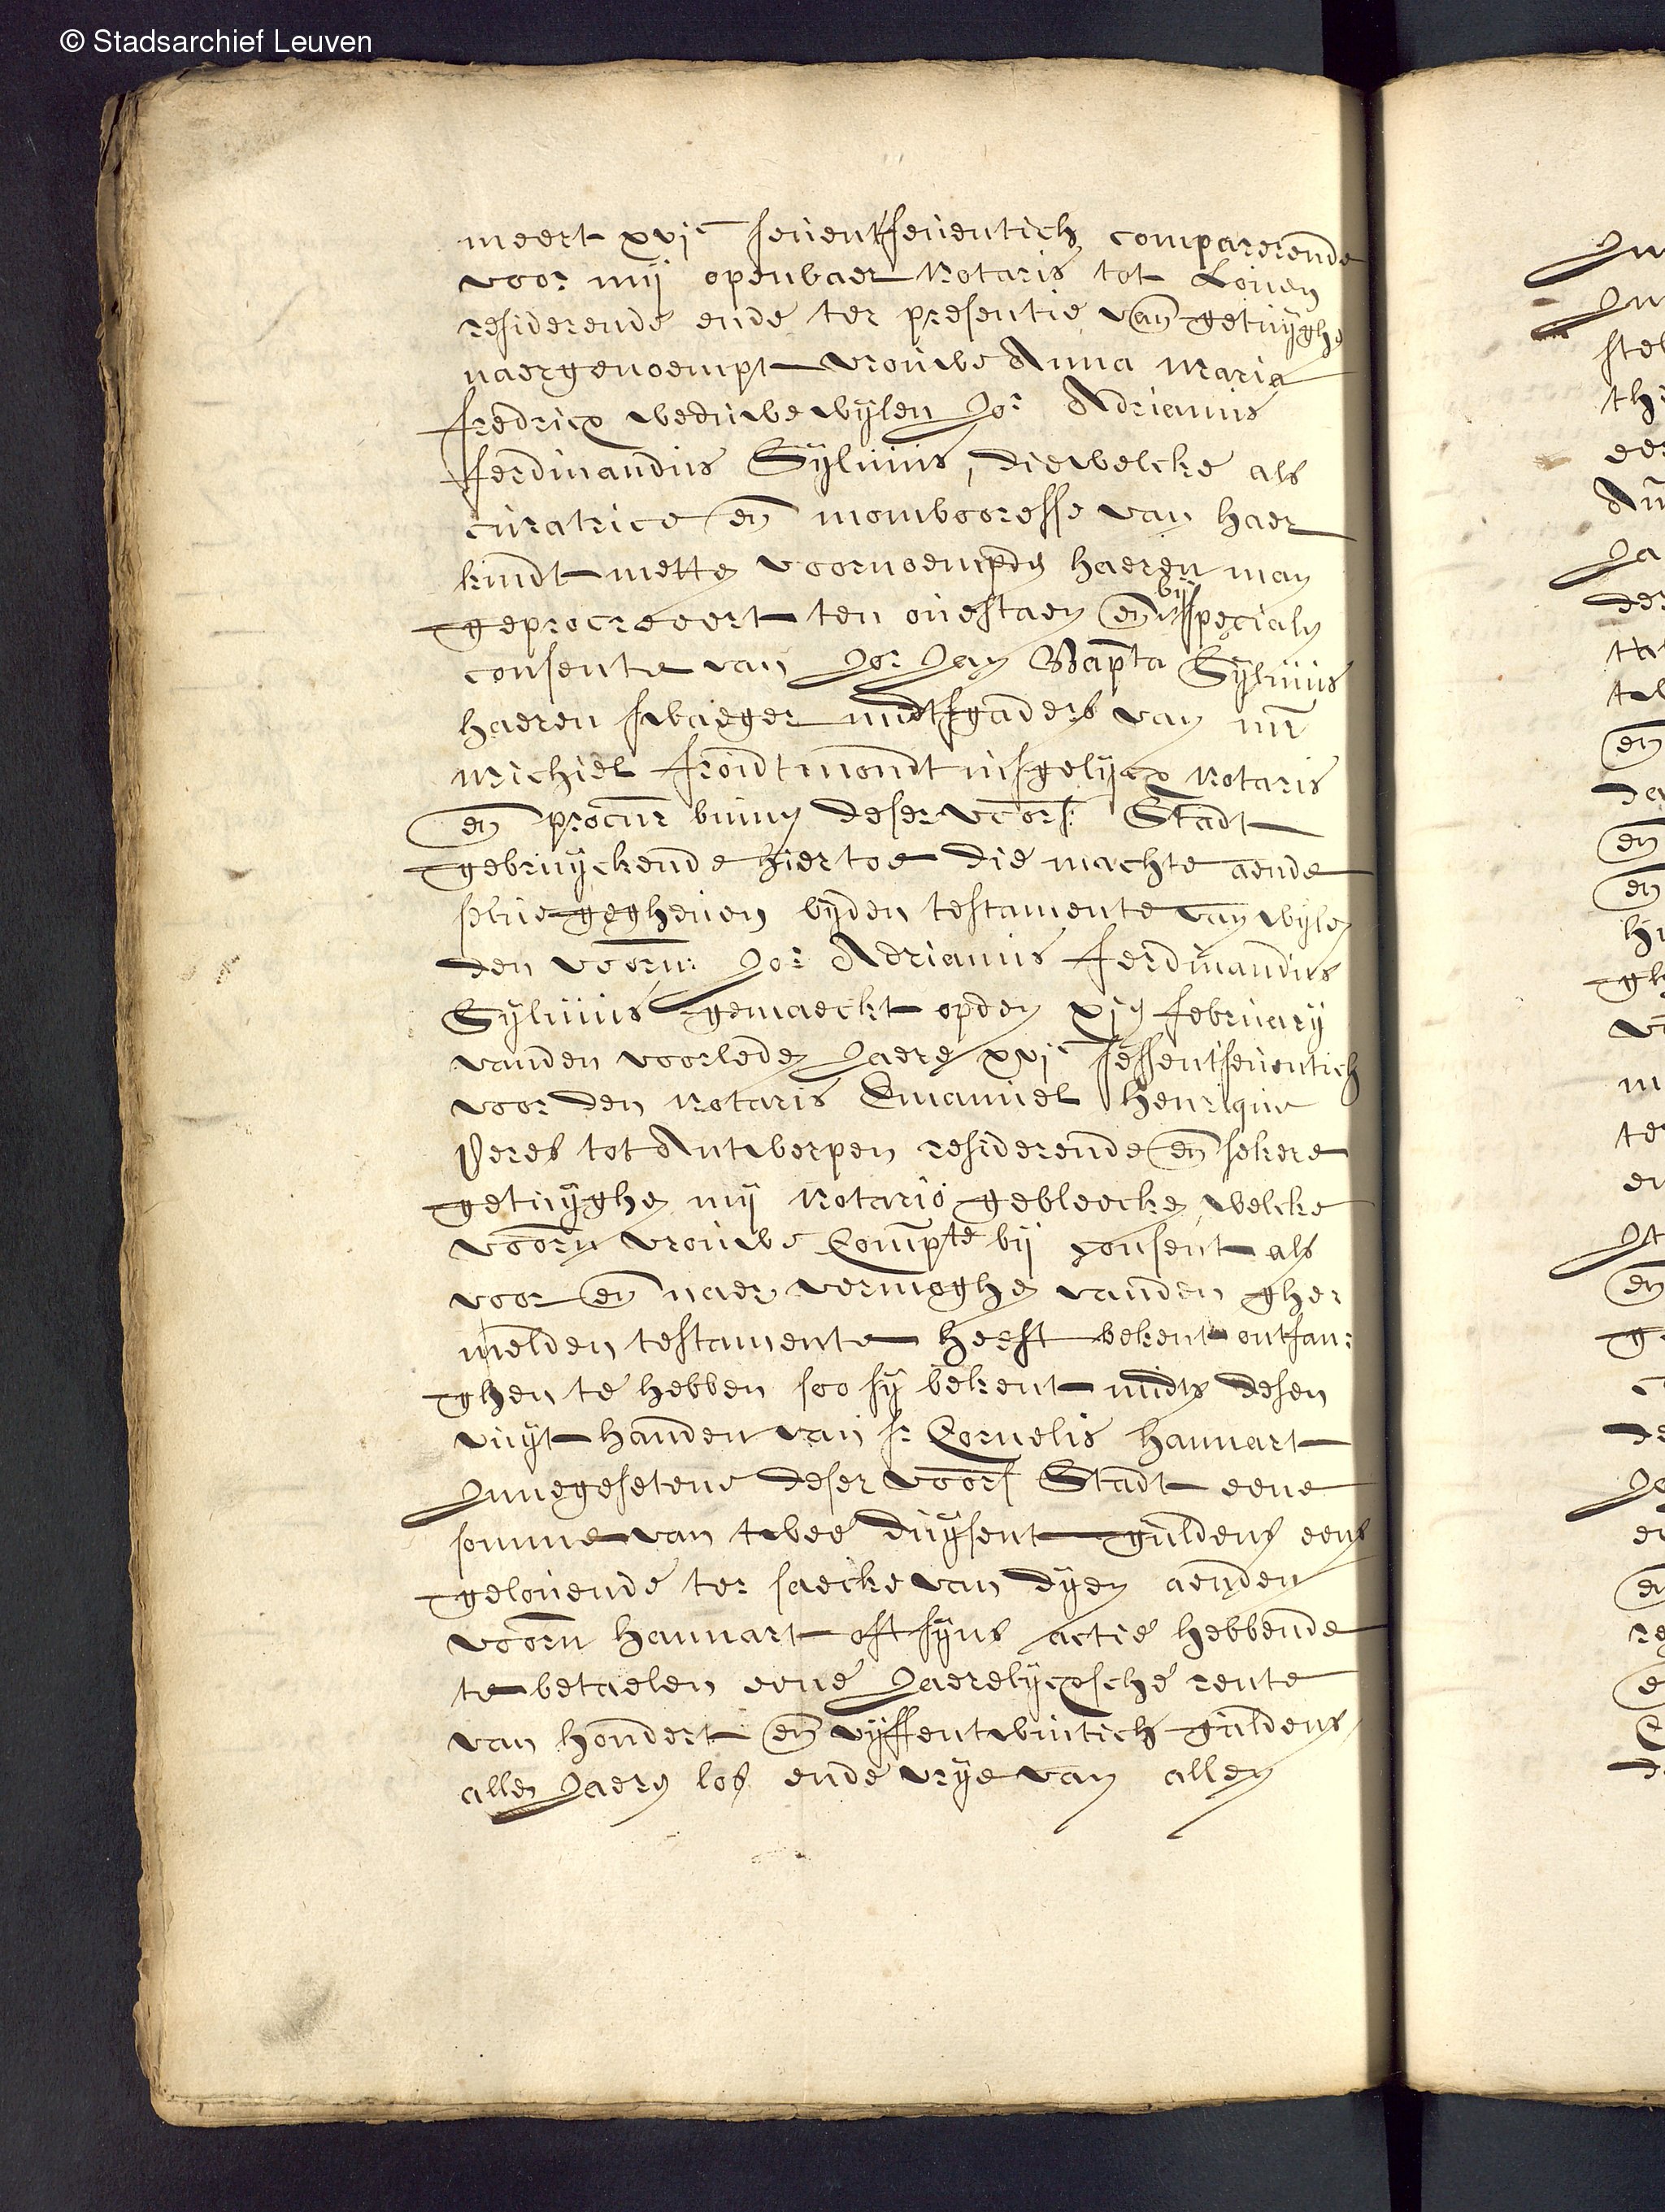 © Stadsarchief Leuven
meert xvjc seventseventich comparerende
voor mij openbaer Notaris tot Loven
residerende ende ter presentie van getuijghen
naergenoempt vrouwe Anna Maria
fredricx weduwe wijlen Jor Adrianus
ferdinandus Sylvius, diewelcke als
curatrice en mombooresse van haer
kindt mette voornoempden haeren man
geprocreeert ten overstaen en bij specialen
consente van Jor Jan Bapta Sylvius
haeren swaeger midtsgaders van mr
Michiel froidtmondt insgelijcx Notaris
en procur binnen deser voors: Stadt
gebruijckende hiertoe die machte aende
selve gegheven bijden testamente van wijlen
den voorn: Jor Adrianus ferdinandus
Sylvius gemaeckt opden xjen february
vanden voorleden Jaere xvjc sessentseventich
voor den Notaris Emanuel Henrique
Peres tot Antwerpen residerende en sekere
getuijghen mij Notario gebleecken, welcke
voorn vrouwe Compte bij consent als
voor en naer vermoghen vanden ghe:
melden testamente heeft bekent ontfan:
ghen te hebben soo sij bekent midts desen
vuijt handen van sr Cornelis hannart
Innegesetene deser voors Stadt eene
somme van twee duijsent guldens eens
gelovende ter saecke van dijen aenden
voorn hannart oft sijns actie hebbende
te betaelen eene Jaerelijcxsche rente
van hondert en vijffentwintich guldens
allen Jaers los ende vrije van allen
Jn
Jn